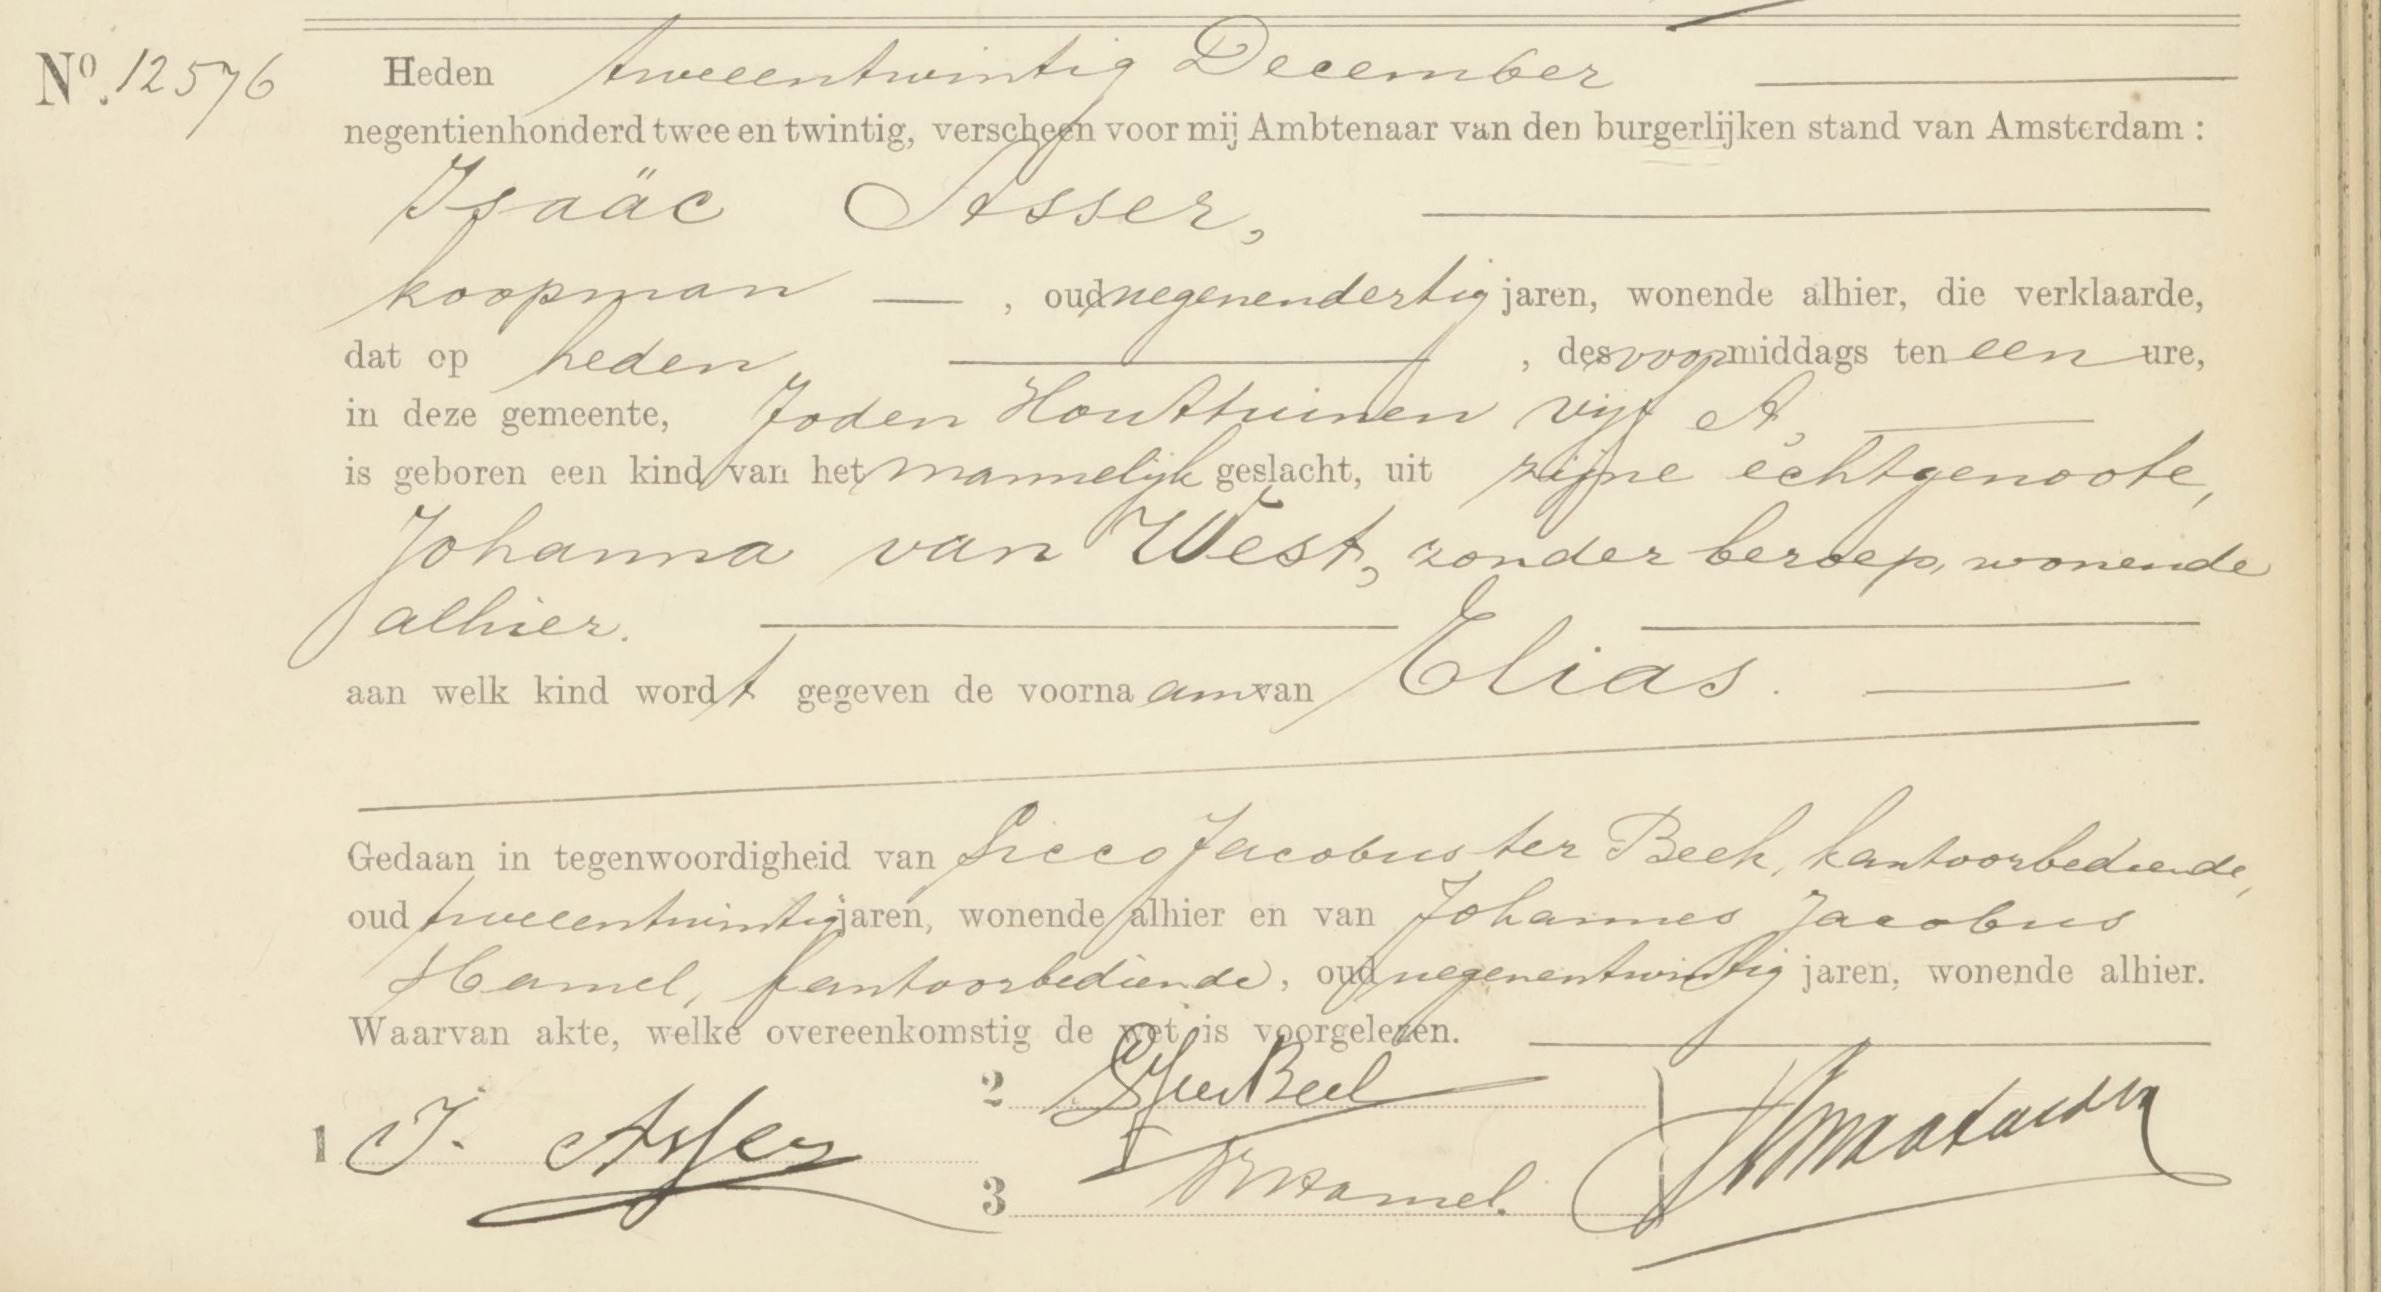 No. 12576
Heden tweeentwintig December
negentienhonderd twee en twintig, verscheen voor mij Ambtenaar van den burgerlijken stand van Amsterdam :
Isaäc Asser,
koopman , oud negenendertig jaren, wonende alhier, die verklaarde,
dat op heden , des voormiddags ten een ure,
in deze gemeente, Joden Houttuinen vijf A,
is geboren een kind van het mannelijk geslacht, uit zijne echtgenoote,
Johanna van West, zonder beroep, wonende
alhier.
aan welk kind wordt gegeven de voornaam van Elias.
Gedaan in tegenwoordigheid van Sicco Jacobus ter Beek, kantoorbediende,
oud tweeentwintig jaren, wonende alhier en van Johannes Jacobus
Hamel, kantoorbediende, oud negenentwintig jaren, wonende alhier.
Waarvan akte, welke overeenkomstig de wet is voorgelezen.
1 J. Asser
2 SJterBeek
3 Hamel.